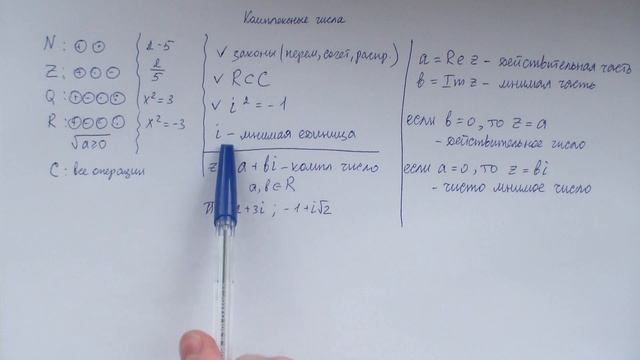 Комплексные числа
N: (+) (·)
2-5
Z: (+) (·) (-)
2/5
Q: (+) (-) (·) (:)
x² = 3
R: (+) (-) (·) (:)
x² = -3
√a≥0
C: все операции
✓ законы (перем, сочет, распр.)
✓ R⊂C
✓ i² = -1
i - мнимая единица
z a + bi - компл число
a, b ∈ R
+3i ; -1+i√2
a = Re z - действительная часть
b = Im z - мнимая часть
если b=0, то z = a
- действительное число
если a=0, то z = bi
- чисто мнимое число